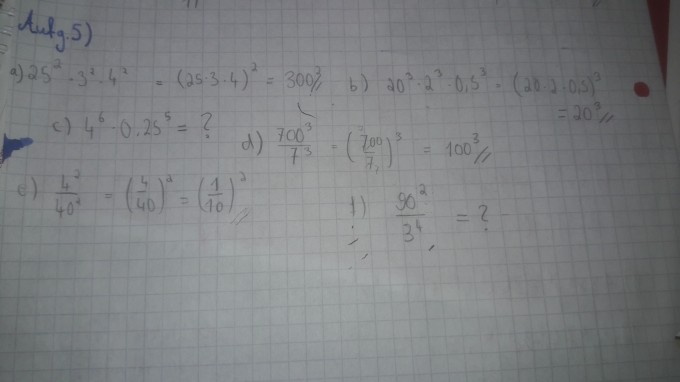 Aufg. 5)
a) 25² · 3² · 4² = (25·3·4)² = 300² b) 20³ · 2³ · 0,5³ = (20·2·0,5)³
= 20³
c) 4⁶ · 0.25⁵ = ? d) 700³/7³ = (700/7)³ = 100³
e) 4²/40² = (4/40)² = (1/10)² f) 90²/3⁴ = ?